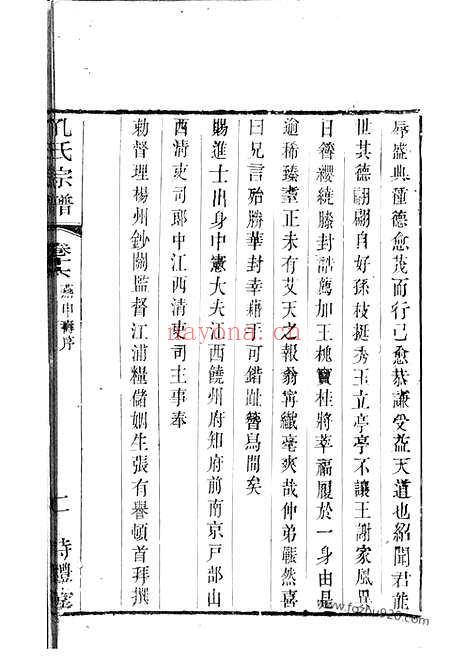 辱盛典種德愈茂而行己愈恭謙受益天道也紹聞君能
世其德翩翩自好孫枝挺秀玉立亭亭不讓王謝家風異
日簪纓繞膝封誥薦加王槐竇桂將萃福履於一身由是
逾稀臻耋正未有艾天之報翁寧纖毫爽哉仲弟囅然喜
曰兄言殆勝華封幸藉手可錯趾簪舃間矣
賜進士出身中憲大夫江西饒州府知府前南京戶部山
西清吏司郎中江西清吏司主事奉
勅督理楊州鈔關監督江浦糧儲姻生張有譽頓首拜撰
孔氏宗譜
卷
壽序
二
詩禮堂
nayona.cn
www.fozhu920.com